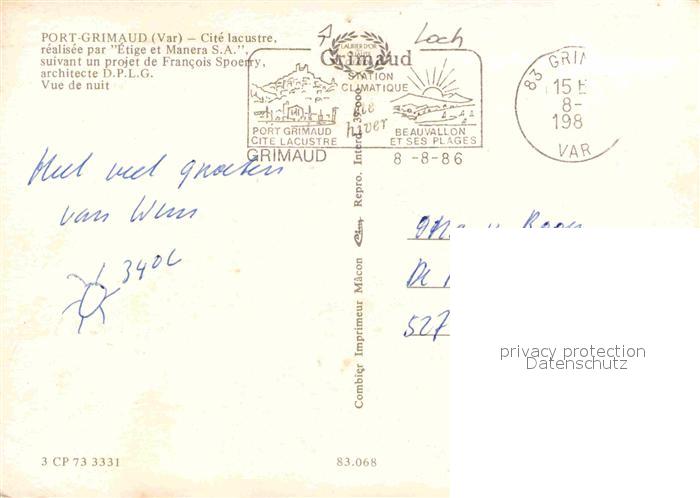 PORT-GRIMAUD (Var) — Cité lacustre,
réalisée par "Étige et Manera S.A.",
suivant un projet de François Spoerry,
architecte D.P.L.G.
Vue de nuit
Loch
LAURIER D'OR
Grimaud
STATION
CLIMATIQUE
hiver
PORT GRIMAUD
CITE LACUSTRE
BEAUVALLON
ET SES PLAGES
GRIMAUD
8-8-86
83 GRIM
15 H
8-
198
VAR
Heel veel groeten
van Wim
34°C
Combier Imprimeur Mâcon Cim Repro. Interd. 39-000
De
527
privacy protection
Datenschutz
3 CP 73 3331
83.068